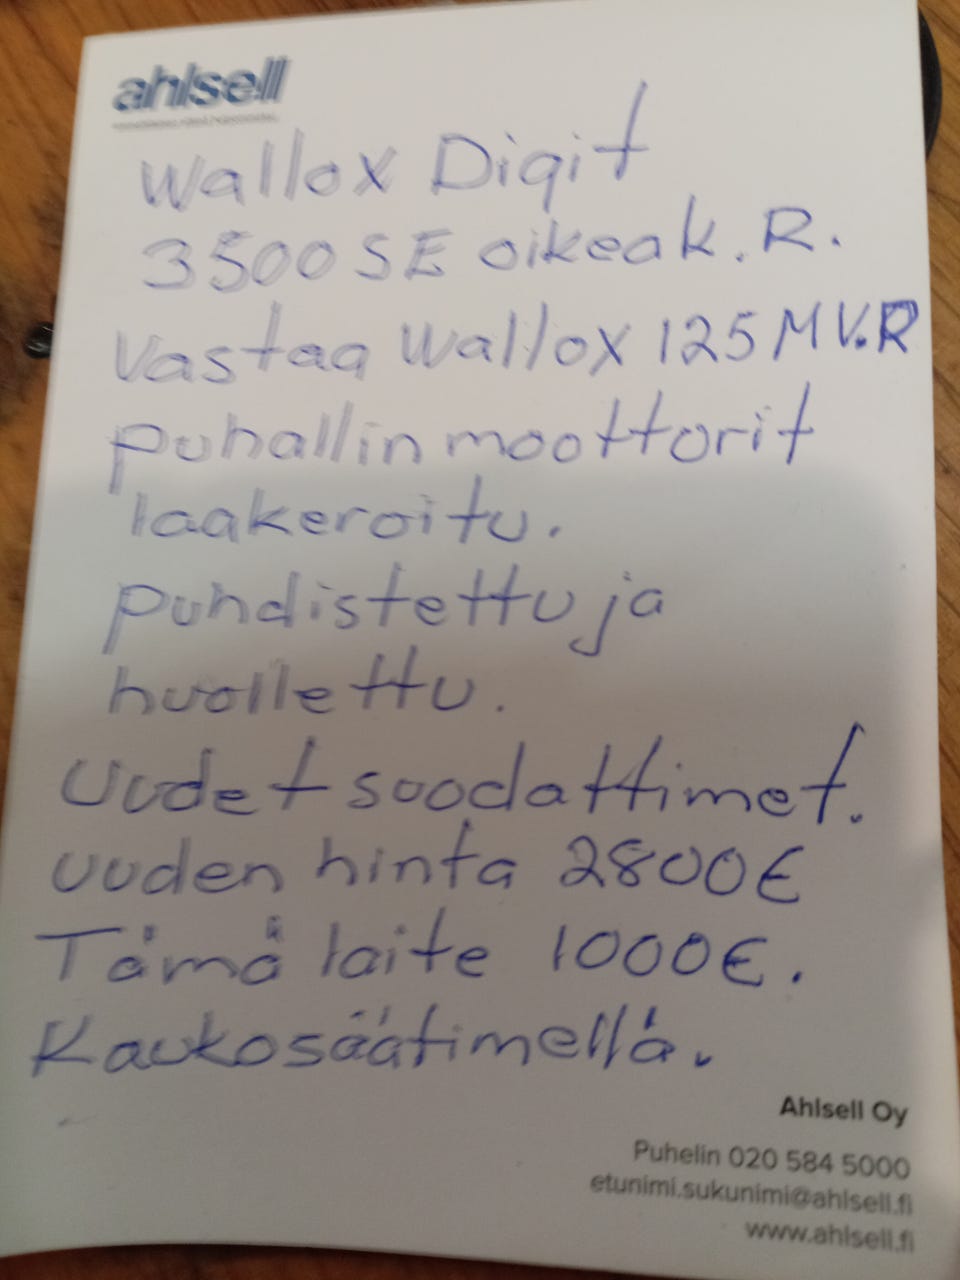 ahlsell
Wallox Digit
3500 SE oikeak. R.
Vastaa Wallox 125 MV.R
puhallin moottorit
laakeroitu.
puhdistettu ja
huollettu.
Uudet suodattimet.
uuden hinta 2800€
Tämä laite 1000€.
Kaukosäätimellä.
Ahlsell Oy
Puhelin 020 584 5000
etunimi.sukunimi@ahlsell.fi
www.ahlsell.fi